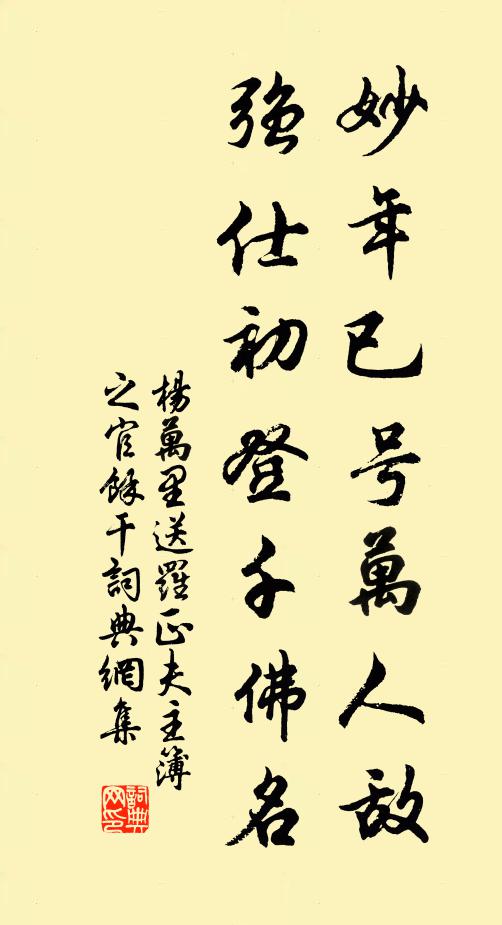 妙年已号萬人敌
强仕初登千佛名
楊萬里送羅正夫主簿
之官餘干詞典網集
詞典网印